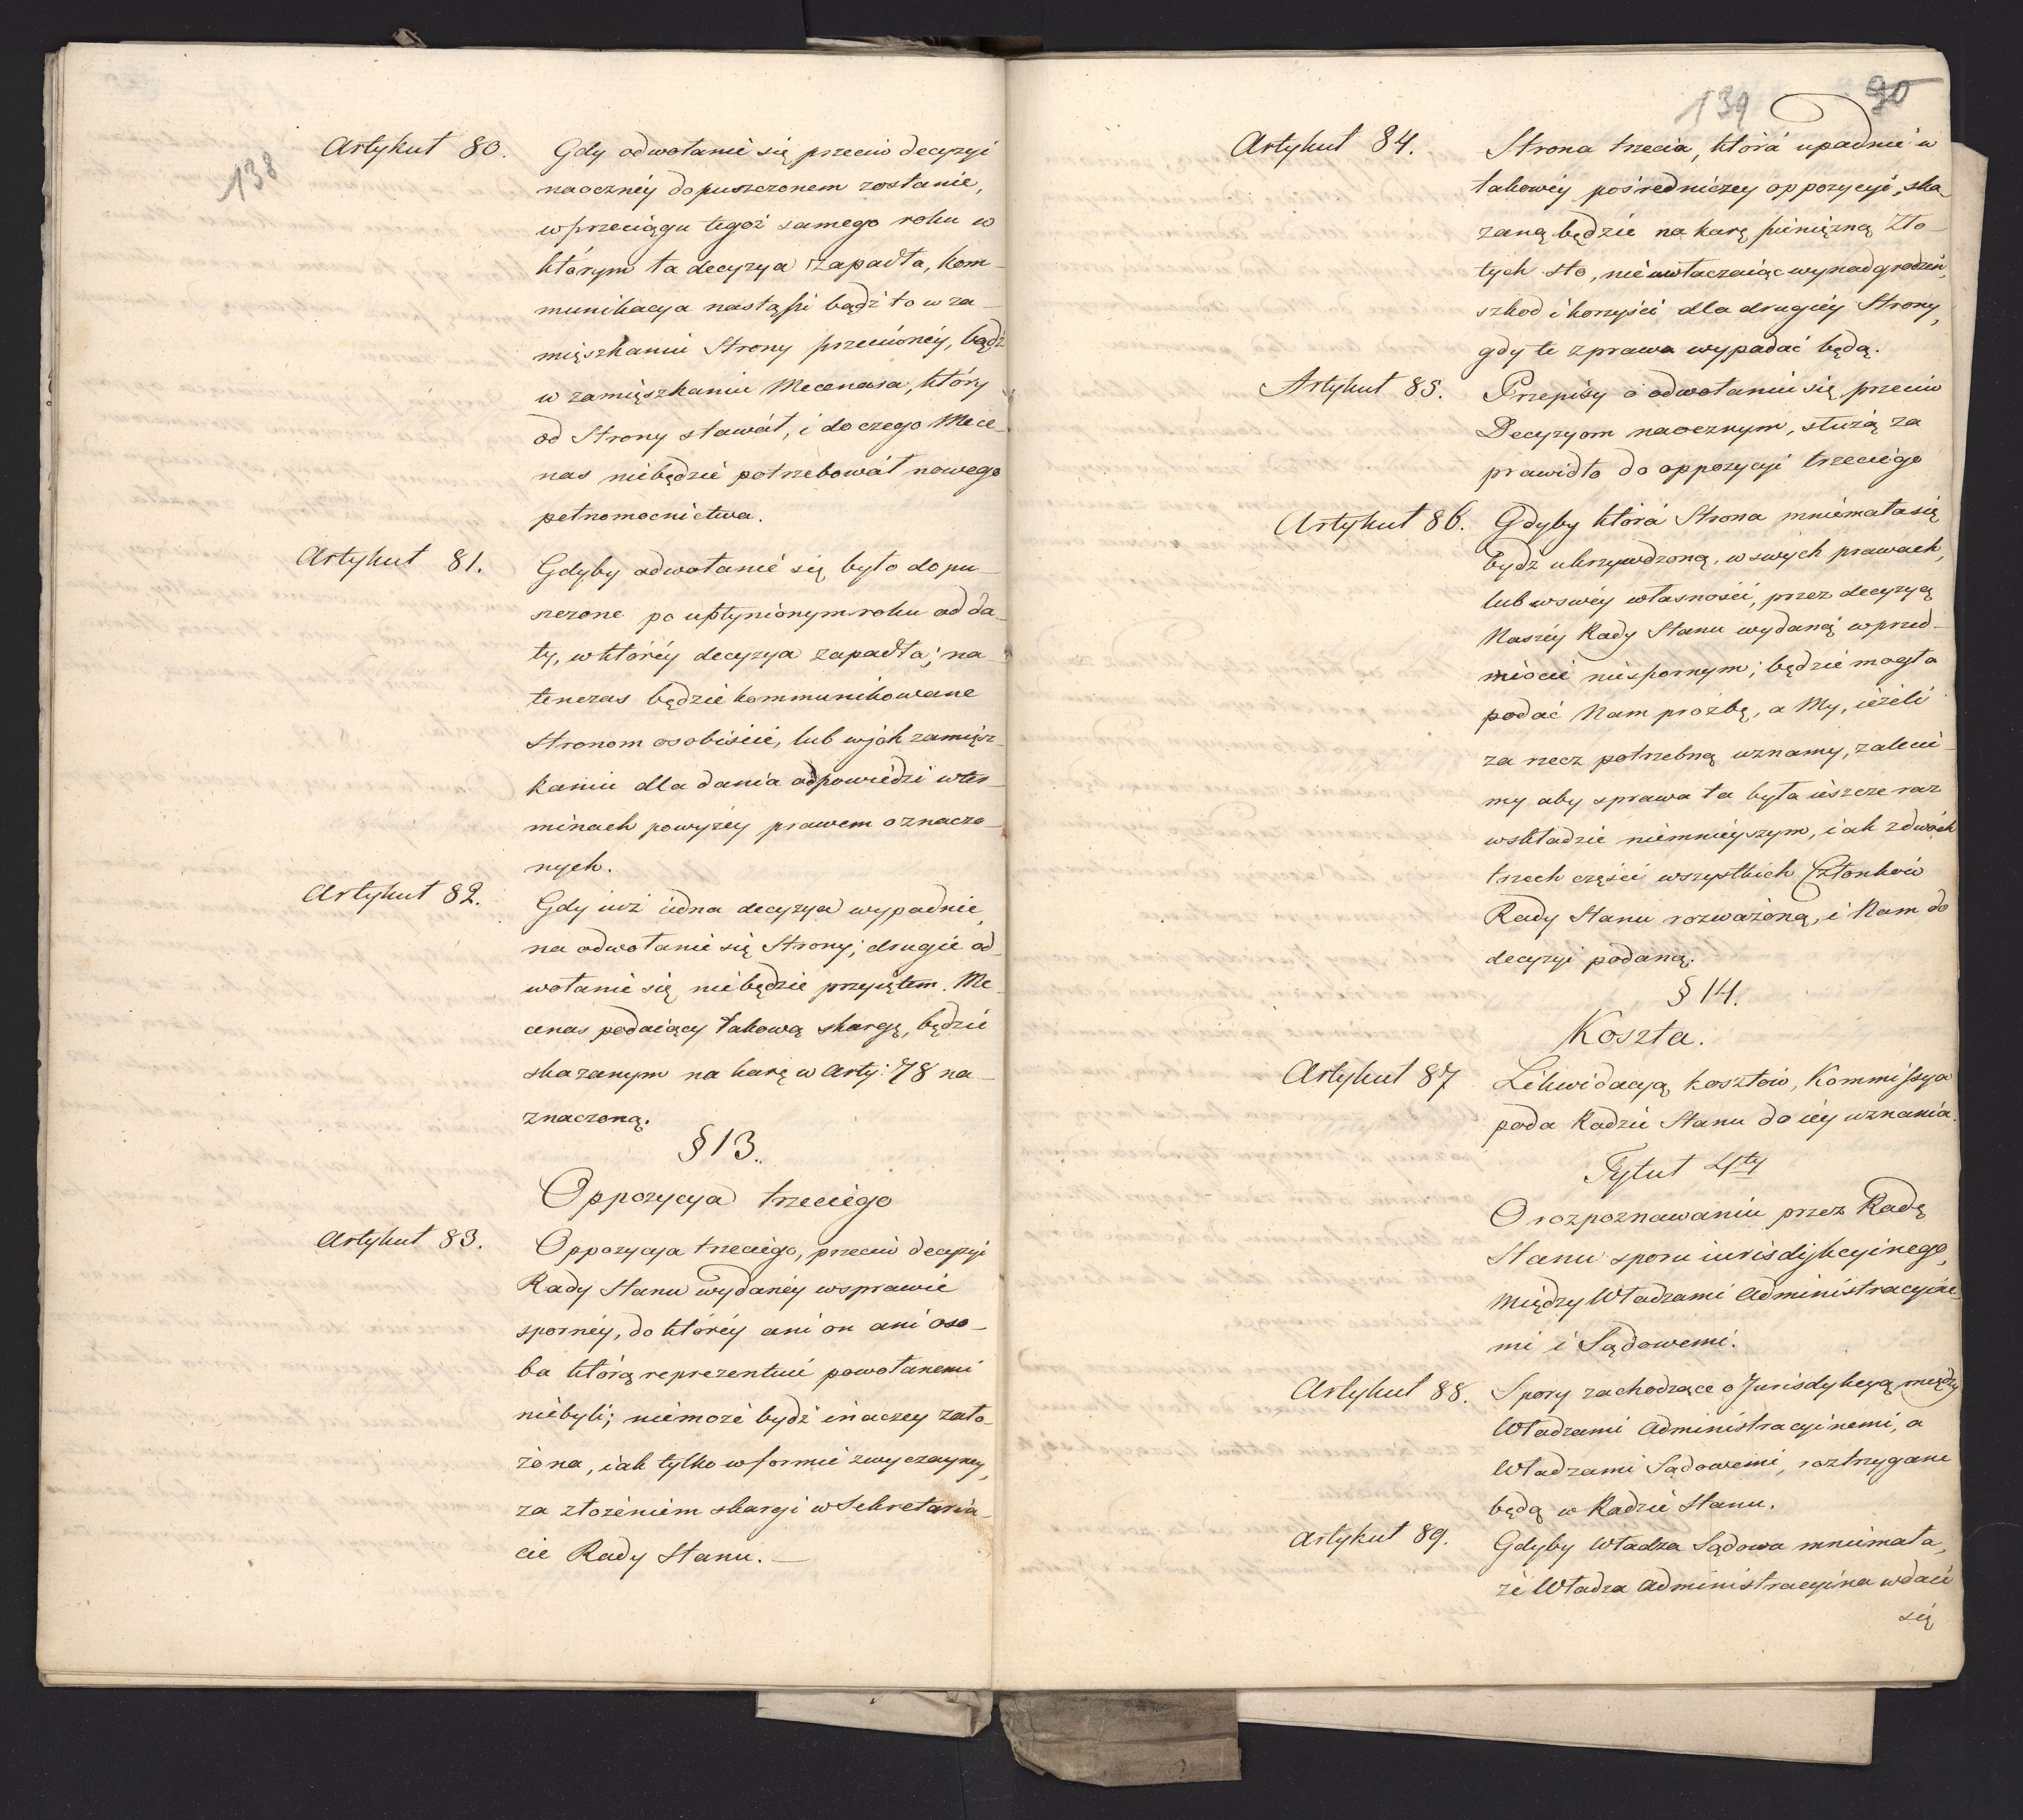 138
Artykuł 80. Gdy odwołanié się przeciw decyzyi
naocznéy dopuszczonem zostanie,
w przeciągu tegoż samego roku w
którym ta decyzya zapadła, kom-
munikacya nastąpi bądź to w za-
mięszkaniu Strony przeciwnéy, bądź
w zamięszkaniu Mecenasa, który
od Strony stawał, i do czego Mece-
nas niebędzié potrzebował nowego
pełnomocnictwa.
Artykuł 81. Gdyby odwołanié się było dopu-
szczone po upłynionym roku od da-
ty, w któréy decyzya zapadła; na-
tenczas będzie kommunikowane
Stronom osobiscié, lub w jch zamięsz-
kaniu dla dania odpowiédzi w ter-
minach powyżéy prawem oznaczo-
nych.
Artykuł 82. Gdy iuż iedna decyzya wypadnie,
na odwołanié się Strony; drugie od-
wołanié się niebędzie przyiętem. Me-
cenas podaiący takową skargę, będzie
skazanym na karę w Arty: 78 na-
znaczoną.
§ 13.
Oppozycya trzeciégo
Artykuł 83. Oppozycya trzeciego, przeciw decyzyi
Rady Stanu wydanéy w sprawie
spornéy, do któréy ani on ani oso-
ba którą reprezentuié powołanemi
niébyli; niémożé bydź inaczey zało-
żona, iak tylko w formié zwyczayney,
za złożéniem skargi w Sekretarya-
cie Rady Stanu. —
139
90
Artykuł 84. Strona trzecia, którá upadnié w
takowéy pośredniczey oppozycyi, ska-
zaną będzie na karę piéniężną Zło-
tych sto, niéuwłaczaiąc wynadgrodzeń,
szkod i korzyści dla drugiéy Strony,
gdy te z prawa wypadać będą.
Artykuł 85. Przepisy o odwołaniu się przeciw
Decyzyom naocznym, służą za
prawidło do oppozycyi trzeciégo
Artykuł 86. Gdyby którá Strona mniémała się
bydź ukrzywdzoną, w swych prawach,
lub w swéy własności, przez decyzyą
Naszéy Rady Stanu wydaną w przed-
miocié niéspornym; będzié mogła
podać Nam prozbę, a My, iéżeli
za rzecz potrzebną uznamy, zaleci-
my aby sprawa ta była iészcze raz
w składzie niémniéyszym, iak z dwóch
trzech części wszystkich Członków
Rady Stanu rozważoną, i Nam do
decyzyi podaną.
§ 14.
Koszta.
Artykuł 87 Likwidacyą kosztów, Kommissya
poda Radzié Stanu do iéy uznania.
Tytuł 4ty
O rozpoznawaniu przez Radę
Stanu sporu iurisdykcyinego,
między Władzami Administracyine-
mi i Sądowemi.
Artykuł 88. Spory zachodzące o Jurisdykcyą między
Władzami Administracyinemi, a
Władzami Sądowemi, roztrzygane
będą w Radzié Stanu.
Artykuł 89. Gdyby Władza Sądowa mniemała,
żé Władza Administracyina wdaié
się